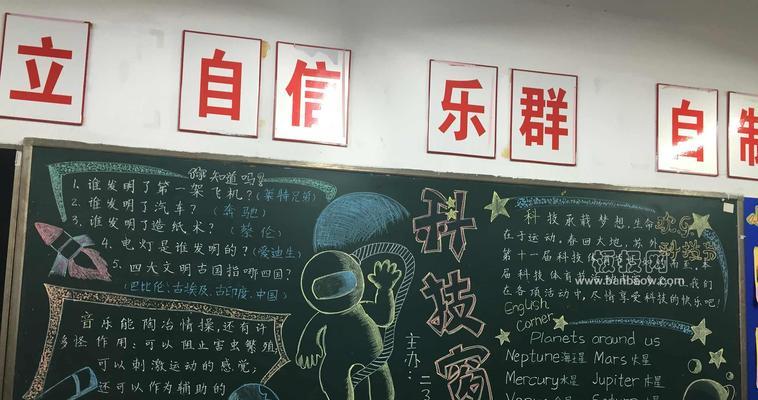 立 自信 乐群 自制
你知道吗?
1.谁发明了第一架飞机?(莱特兄弟)
2.谁发明了汽车?(奔驰)
3.谁发明了造纸术?(蔡伦)
4.电灯是谁发明的?(爱迪生)
5.四大文明古国指哪四国?
(巴比伦、古埃及、古印度、中国)
音乐能陶冶情操,还有许
多怪作用:可以阻止害虫繁殖,
可以刺激运动的感觉;
还可以作为辅助的
科技窗
主办:
二3
科技承载梦想,生命
在于运动。春回大地,苏外
第十一届科技
届科技体育节
在各项活动中,尽情享受科技的快乐吧!
科技节
板报网
www.banbaow.com
English
Corner
Planets around us
Neptune海王星 Mars火星
Mercury水星 Jupiter木星